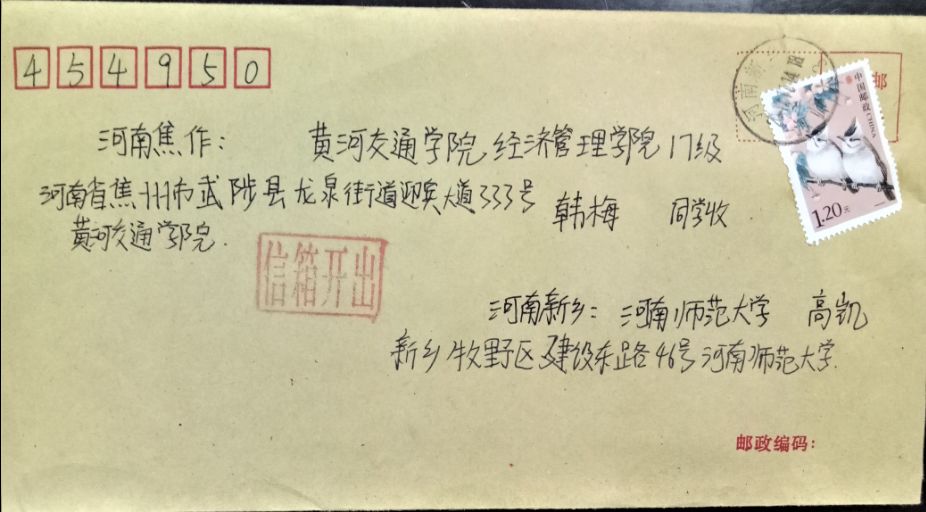 454950
河南焦作： 黄河交通学院 经济管理学院 17级
河南省焦州市武陟县龙泉街道迎宾大道333号
韩梅 同学收
黄河交通学院.
信箱开出
河南新乡：河南师范大学 高凯
新乡牧野区建设东路46号河南师范大学.
邮政编码：
邮
河南新
中国邮政 CHINA
1.20元